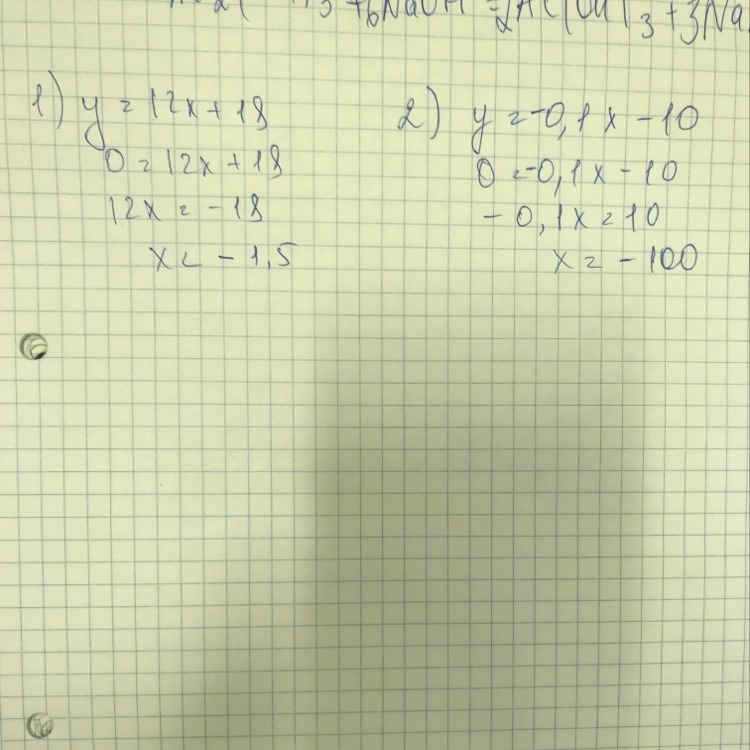 +6NaOH = 2Al(OH)3 + 3Na
1) y = 12x + 18
0 = 12x + 18
12x = -18
x = -1,5
2) y = -0,1x - 10
0 = -0,1x - 10
-0,1x = 10
x = -100